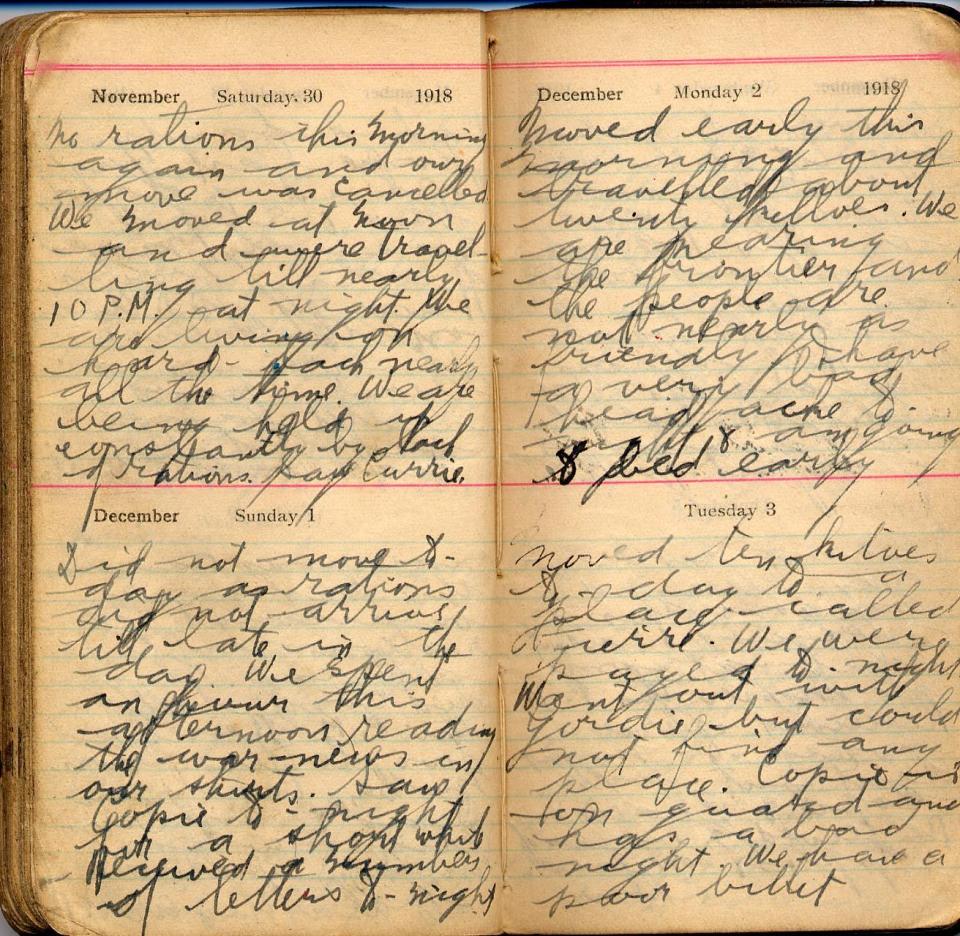 November Saturday. 30 1918
No rations this morning
again and our
move was cancelled
We moved at noon
and were travel-
ling till nearly
10 P.M. at night. We
are living on
hard-tack nearly
all the time. We are
being held up
constantly by lack
of rations. Saw Currie.
December Sunday 1
Did not move to-
day as rations
did not arrive
till late in the
day. We spent
an hour this
afternoon reading
the war-news in
our shirts. Saw
Copie to-night
for a short while
Received a number
of letters to-night
December Monday 2 1918
Moved early this
morning and
travelled about
twenty killves. We
are nearing
the frontier and
the people are
not nearly as
friendly I have
a very bad
head ache to-
night & am going
to bed early
Tuesday 3
Moved ten kilves
to-day to a
place called
We were
payed to-night
Went out with
Gordie but could
not find any
place. Copie is
on guard and
has a bad
night. We have a
poor billet